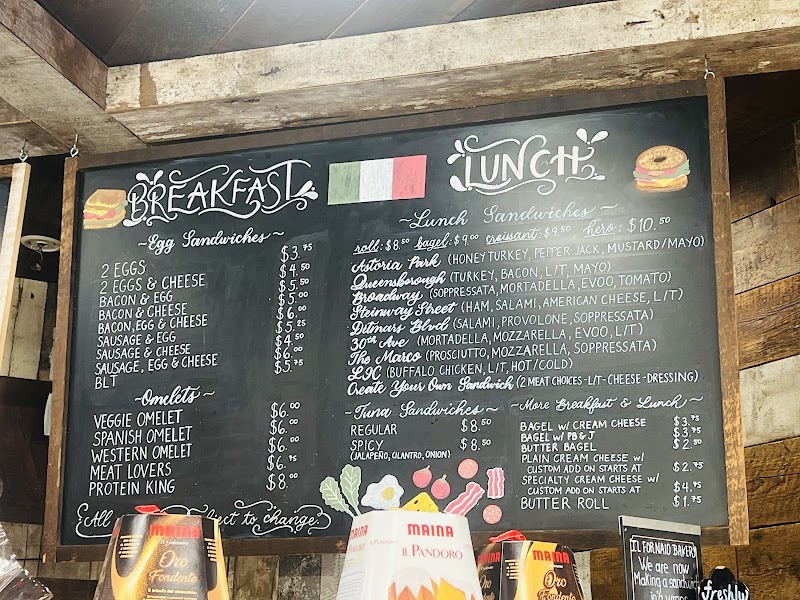 BREAKFAST
~Egg Sandwiches~
2 EGGS $3.75
2 EGGS & CHEESE $4.50
BACON & EGG $5.50
BACON & CHEESE $5.00
BACON, EGG & CHEESE $6.00
SAUSAGE & EGG $5.25
SAUSAGE & CHEESE $4.50
SAUSAGE, EGG & CHEESE $6.00
BLT $5.75
~Omelets~
VEGGIE OMELET $6.00
SPANISH OMELET $6.00
WESTERN OMELET $6.00
MEAT LOVERS $6.75
PROTEIN KING $8.00
All ject to change.
LUNCH
~Lunch Sandwiches~
roll: $8.50 bagel: $9.00 croissant: $9.50 hero: $10.50
Astoria Park (HONEY TURKEY, PEPPER JACK, MUSTARD/MAYO)
Queensborough (TURKEY, BACON, L/T, MAYO)
Broadway (SOPPRESSATA, MORTADELLA, EVOO, TOMATO)
Steinway Street (HAM, SALAMI, AMERICAN CHEESE, L/T)
Ditmars Blvd (SALAMI, PROVOLONE, SOPPRESSATA)
30th Ave (MORTADELLA, MOZZARELLA, EVOO, L/T)
The Marco (PROSCIUTTO, MOZZARELLA, SOPPRESSATA)
LIC (BUFFALO CHICKEN, L/T, HOT/COLD)
Create Your Own Sandwich (2 MEAT CHOICES-L/T-CHEESE-DRESSING)
~Tuna Sandwiches~
REGULAR $8.50
SPICY $8.50
(JALAPEÑO, CILANTRO, ONION)
~More Breakfast & Lunch~
BAGEL W/ CREAM CHEESE $3.75
BAGEL W/ PB & J $3.75
BUTTER BAGEL $2.50
PLAIN CREAM CHEESE W/
CUSTOM ADD ON STARTS AT $2.75
SPECIALTY CREAM CHEESE W/
CUSTOM ADD ON STARTS AT $4.75
BUTTER ROLL $1.75
MAINA
Oro
Fondente
MAINA
IL PANDORO
MAINA
Oro
Fondente
IL FORNAIO BAKERY
We are now
Making a sandwich
in a wrap
freshly